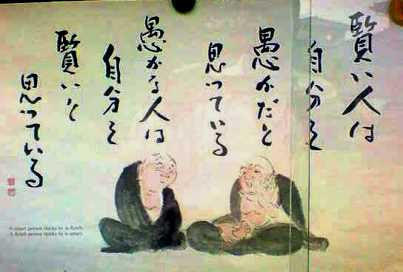 賢い人は
自分を
愚かだと
思っている
愚かな人は
自分を
賢いと
思っている
A smart person thinks he is foolish.
A foolish person thinks he is smart.